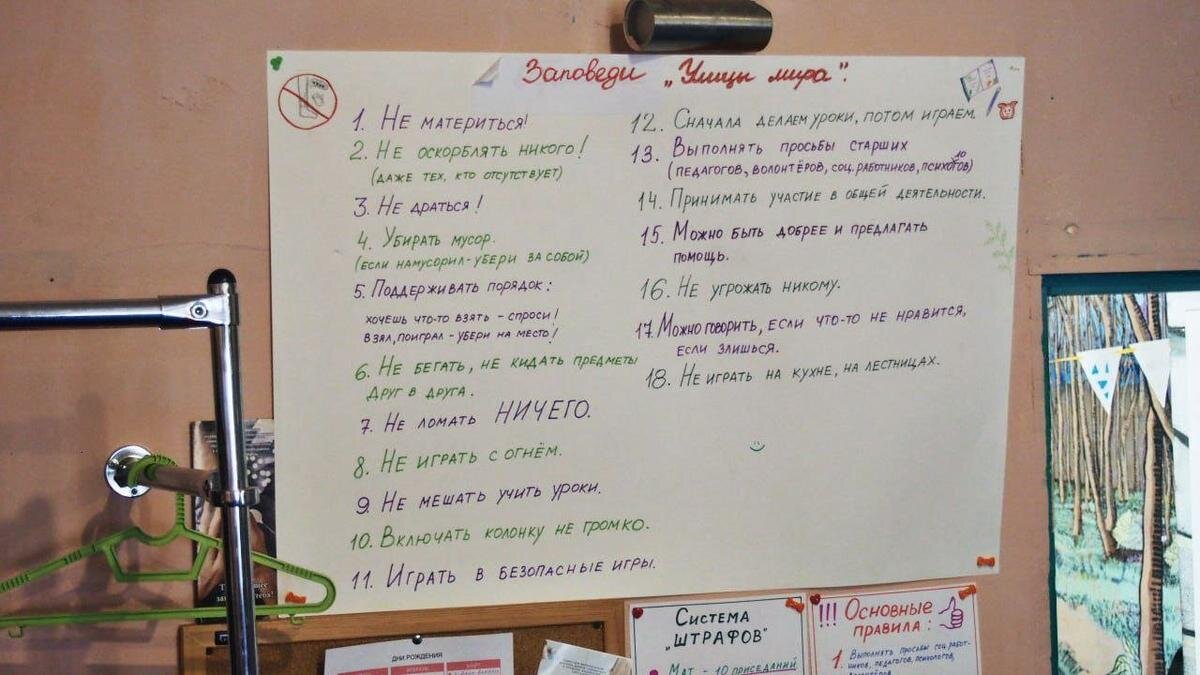 Заповеди „Улицы мира".
1. Не материться!
2. Не оскорблять никого!
(даже тех, кто отсутствует)
3. Не драться!
4. Убирать мусор.
(если намусорил-убери за собой)
5. Поддерживать порядок:
хочешь что-то взять - спроси!
взял, поиграл - убери на место!
6. Не бегать, не кидать предметы
друг в друга.
7. Не ломать НИЧЕГО.
8. Не играть с огнём.
9. Не мешать учить уроки.
10. Включать колонку не громко.
11. Играть в безопасные игры.
12. Сначала делаем уроки, потом играем.
13. Выполнять просьбы старших
(педагогов, волонтёров, соц. работников, психологов)
14. Принимать участие в общей деятельности.
15. Можно быть добрее и предлагать
помощь.
16. Не угрожать никому.
17. Можно говорить, если что-то не нравится,
если злишься.
18. Не играть на кухне, на лестницах.
ДНИ РОЖДЕНИЯ
Система
„ШТРАФОВ"
Мат - 10 приседаний
!!! Основные
правила:
1. Выполнять просьбы соц. работ-
ников, педагогов, психологов,